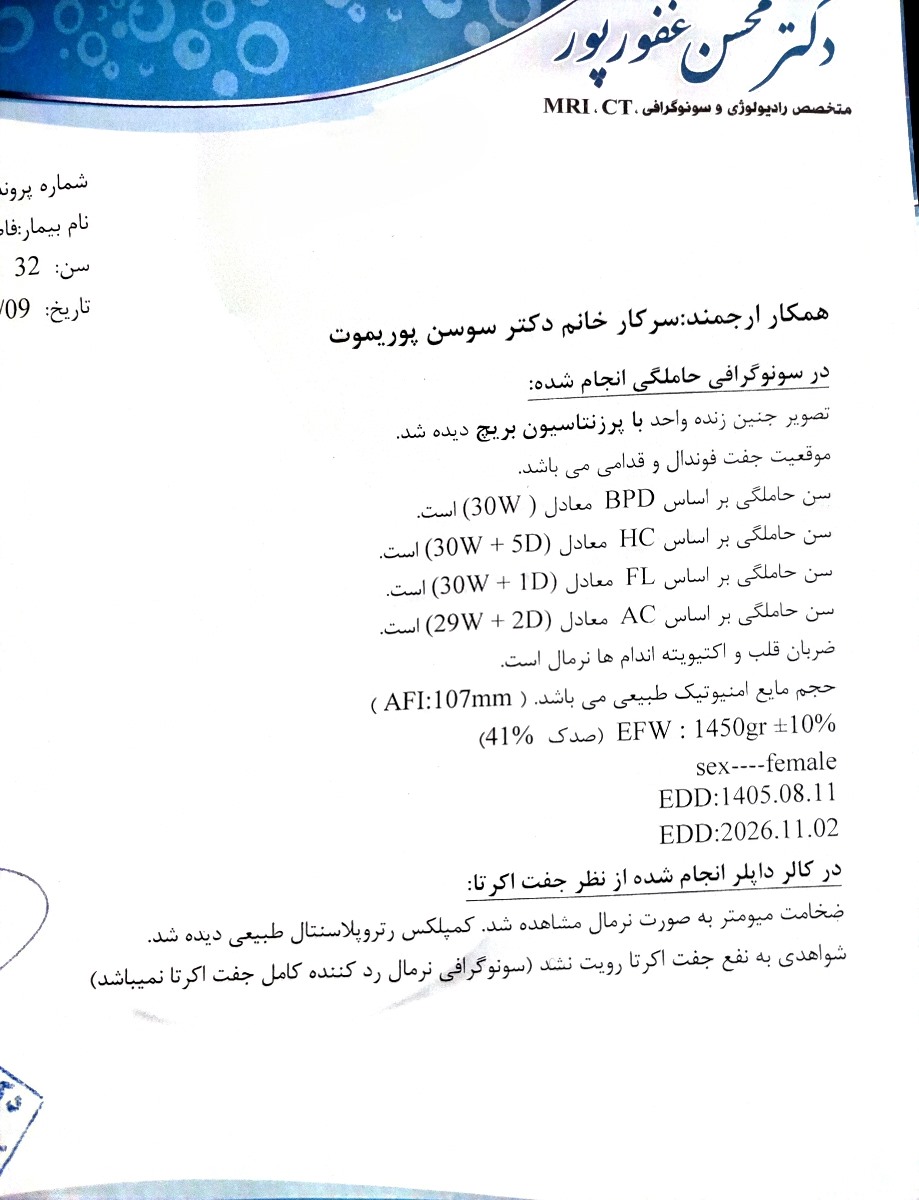 دکتر محسن غفورپور
متخصص رادیولوژی و سونوگرافی ،MRI ، CT
شماره
نام بیمار:
سن: 32
تاریخ: /09
همکار ارجمند:سرکار خانم دکتر سوسن پوریموت
در سونوگرافی حاملگی انجام شده:
تصویر جنین زنده واحد با پرزنتاسیون بریچ دیده شد.
موقعیت جفت فوندال و قدامی می باشد.
سن حاملگی بر اساس BPD معادل ( 30W) است.
سن حاملگی بر اساس HC معادل (30W + 5D) است.
سن حاملگی بر اساس FL معادل (30W + 1D) است.
سن حاملگی بر اساس AC معادل (29W + 2D) است.
ضربان قلب و اکتیویته اندام ها نرمال است.
حجم مایع امنیوتیک طبیعی می باشد. ( AFI:107mm )
EFW : 1450gr ±10% (صدک 41%)
sex----female
EDD:1405.08.11
EDD:2026.11.02
در کالر داپلر انجام شده از نظر جفت اکرتا:
ضخامت میومتر به صورت نرمال مشاهده شد. کمپلکس رتروپلاسنتال طبیعی دیده شد.
شواهدی به نفع جفت اکرتا رویت نشد (سونوگرافی نرمال رد کننده کامل جفت اکرتا نمیباشد)